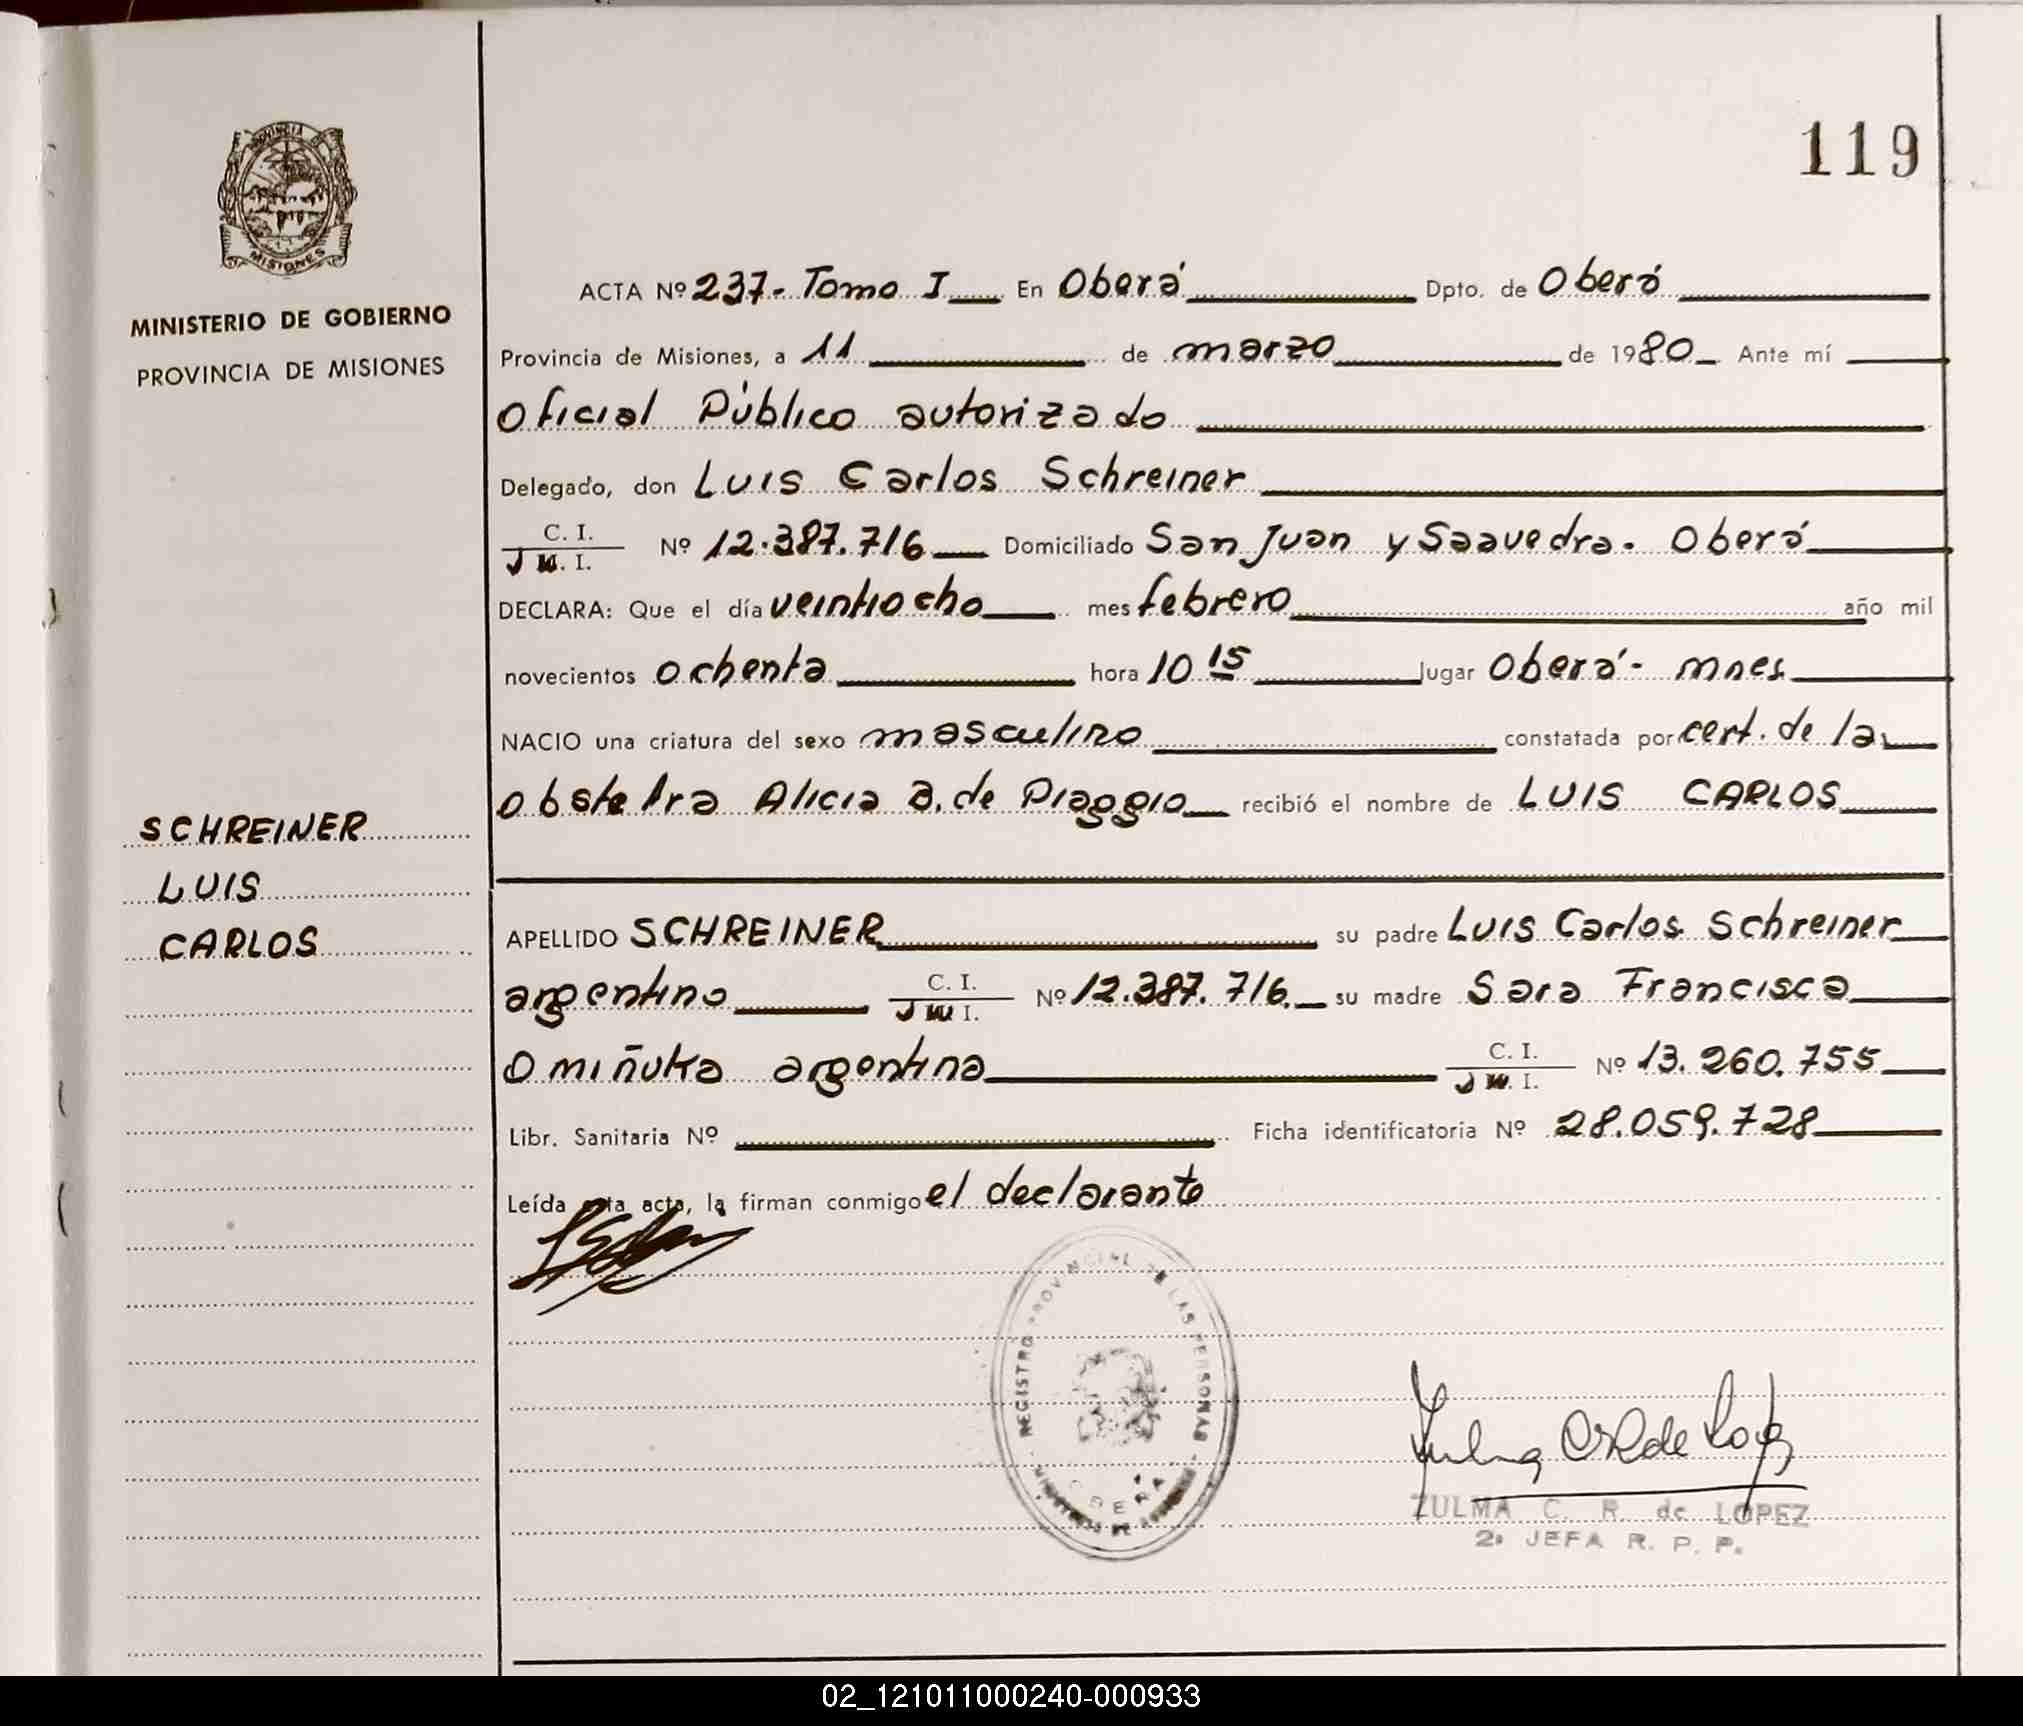 119
PROVINCIA
MISIONES
MINISTERIO DE GOBIERNO
PROVINCIA DE MISIONES
SCHREINER
LUIS
CARLOS
ACTA Nº 237- Tomo I En Oberá Dpto. de Oberá
Provincia de Misiones, a 11 de marzo de 1980 Ante mí
Oficial Público autorizado
Delegado, don Luis Carlos Schreiner
C. I.
M. I. Nº 12.387.716 Domiciliado San Juan y Saavedra. Oberá
DECLARA: Que el día veintiocho mes febrero año mil
novecientos ochenta hora 10 15 lugar Oberá- mnes.
NACIO una criatura del sexo masculino constatada por cert. de la
obstetra Alicia B. de Piaggio recibió el nombre de LUIS CARLOS
APELLIDO SCHREINER su padre Luis Carlos Schreiner
argentino C. I.
M. I. Nº 12.387.716. su madre Sara Francisca
Omiñuka argentina C. I.
M. I. Nº 13.260.755
Libr. Sanitaria Nº Ficha identificatoria Nº 28.059.728
Leída esta acta, la firman conmigo el declarante
REGISTRO PROVINCIAL DE LAS PERSONAS
OBERÁ
ZULMA C. R. de LOPEZ
2ª JEFA R. P. P.
02_121011000240-000933